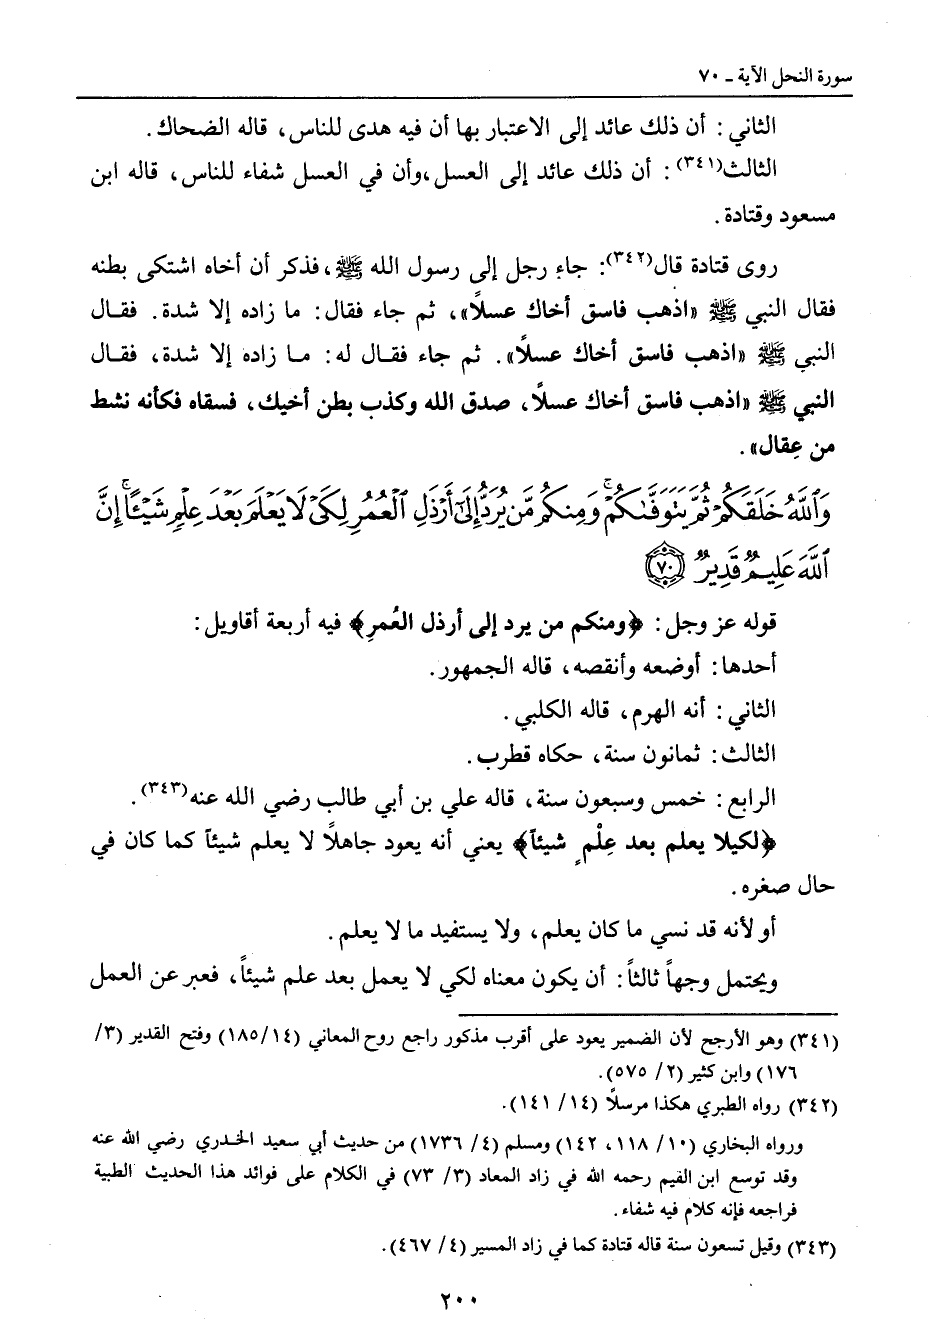 سورة النحل الآية ـ ٧٠
الثاني : أن ذلك عائد إلى الاعتبار بها أن فيه هدى للناس، قاله الضحاك.
الثالث(٣٤١) : أن ذلك عائد إلى العسل،وأن في العسل شفاء للناس، قاله ابن
مسعود وقتادة .
روى قتادة قال(٣٤٢): جاء رجل إلى رسول الله ﷺ،فذكر أن أخاه اشتكى بطنه
فقال النبي ﷺ «اذهب فاسق أخاك عسلاً»، ثم جاء فقال: ما زاده إلا شدة. فقـال
النبي ﷺ «اذهب فاسق أخاك عسلاً». ثم جاء فقـال له: مـا زاده إلا شدة، فقـال
النبي ﷺ «اذهب فاسق أخاك عسلاً، صدق الله وكذب بطن أخيك، فسقاه فكأنه نشط
من عِقال» .
وَٱللَّهُ خَلَقَكُمْ ثُمَّ يَتَوَفَّىٰكُمْ ۚ وَمِنكُم مَّن يُرَدُّ إِلَىٰٓ أَرْذَلِ ٱلْعُمُرِ لِكَىْ لَا يَعْلَمَ بَعْدَ عِلْمٍ شَيْـًٔا ۚ إِنَّ
ٱللَّهَ عَلِيمٌ قَدِيرٌ ﴿٧٠﴾
قوله عز وجل: ﴿ومنكم من يرد إلى أرذل العُمرِ﴾ فيه أربعة أقاويل:
أحدها: أوضعه وأنقصه، قاله الجمهور.
الثاني : أنه الهرم، قاله الكلبي .
الثالث: ثمانون سنة، حكاه قطرب.
الرابع: خمس وسبعون سنة، قاله علي بن أبي طالب رضي الله عنه(٣٤٣).
﴿لكيلا يعلم بعد عِلْمٍ شيئاً﴾ يعني أنه يعود جاهلاً لا يعلم شيئاً كما كان في
حال صغره.
أو لأنه قد نسي ما كان يعلم، ولا يستفيد ما لا يعلم.
ويحتمل وجهاً ثالثاً: أن يكون معناه لكي لا يعمل بعد علم شيئاً، فعبر عن العمل
(٣٤١) وهو الأرجح لأن الضمير يعود على أقرب مذكور راجع روح المعاني (١٤/ ١٨٥) وفتح القدير (٣/
١٧٦) وابن كثير (٢/ ٥٧٥).
(٣٤٢) رواه الطبري هكذا مرسلاً (١٤/ ١٤١).
ورواه البخاري (١٠/ ١١٨، ١٤٢) ومسلم (٤/ ١٧٣٦) من حديث أبي سعيد الخدري رضي الله عنه
وقد توسع ابن القيم رحمه الله في زاد المعاد (٣/ ٧٣) في الكلام على فوائد هذا الحديث الطبية
فراجعه فإنه كلام فيه شفاء.
(٣٤٣) وقيل تسعون سنة قاله قتادة كما في زاد المسير (٤/ ٤٦٧).
٢٠٠